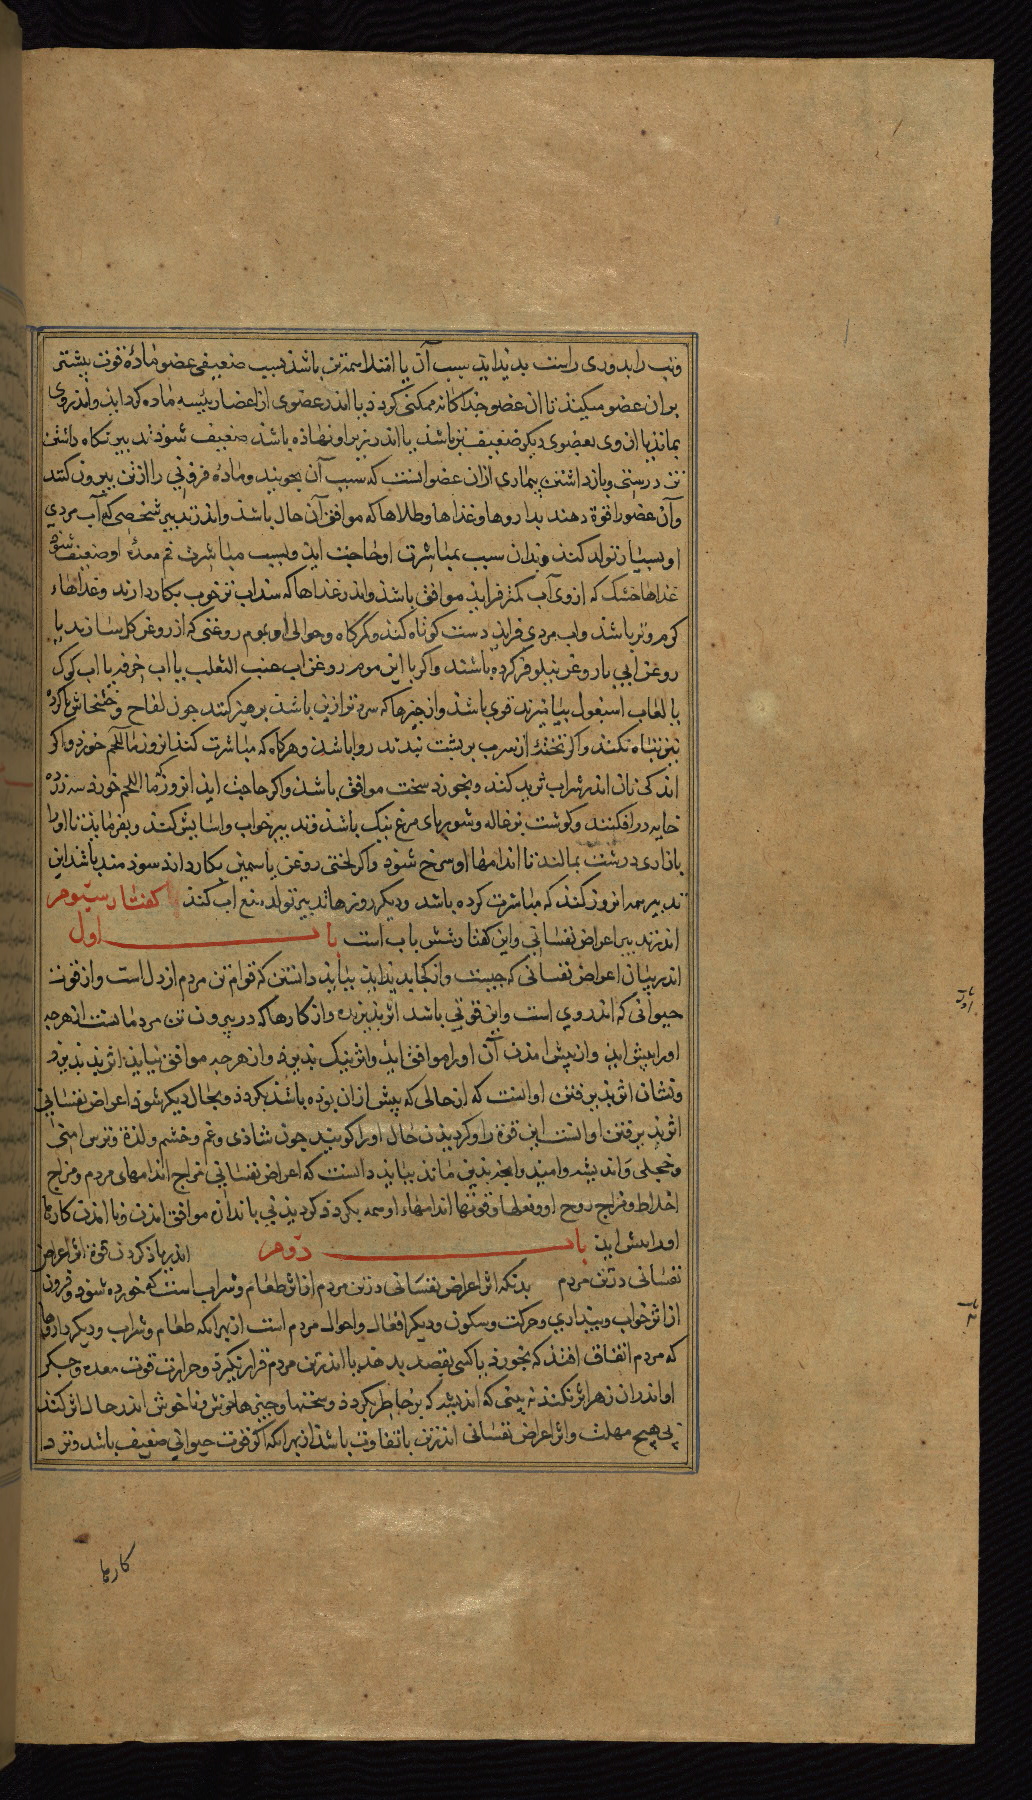 وتب را بدوری راست بدید اید سبب آن یا امتلا همه تن باشد سبب ضعیفی عضو ماده قوت بیشتر
بران عضو میکند تا ان عضو جداکانه ممکنی کردد یا اندر عضوی از اعضا رئیسه ماده کرد اید و اندر وی
بماند یا از وی بعضوی دیکر ضعیف تر باشد یا اندر زیر او نهاذه باشد ضعیف شود تدبیر نکاه داشتن
تن درستی و بازداشتن بیماری ازان عضو انست که سبب آن بجویند و ماده فزونی را از تن بیرون کنند
وآن عضو را قوة دهند بداروها و غذاها و طلاها که موافق آن حال باشد واندر تدبیر شخصی که آب مردی
او بسیار تولد کند و بدان سبب بمباشرت او حاجت اید و بسبب مباشرت فم معده او ضعیف شود
غذاها خشک که از وی آب کمتر فزاید موافق باشد واندر غذاها که سداب تر خوب بکار دارند وغذاهاء
کرم وتر باشد واب مردی فزاید دست کوتاه کند وکمرکاه وحوالی او بموم روغنی که از روغن کل سازند یا
روغن ابی یا روغن نیلوفر کرده باشند واکر با این موم روغن اب عنب الثعلب یا اب خرفه یا اب کوک
یا لعاب اسبغول بیامیزند قوی باشد واز چیزها که سرد تر ازین باشد پرهیز کنند چون لفاح وخشخاش تا کرده
نیز تباه نکند واکر تخته از سرب بر پشت بندند روا باشد وهرکاه که مباشرت کند انروز ماء اللحم خورد واکر
اندکی نان اندر شراب ثرید کند وبخورد سخت موافق باشد واکر حاجت اید انروز که ماء اللحم خورد سه زرده
خایه در افکنند وکوشت بزغاله وشوربای مرغ نیک باشد وتدبیر خواب واسایش کند وبفرماید تا اورا
بازاری درشت بمالند تا اندامها او سرخ شود واکر لختی روغن یاسمین بکار دارند سود مند باشد این
تدبیر همه انروز کند که مباشرت کرده باشد ودیکر روزها تدبیر تولد منع اب کند کفتار سیوم
اندر تدبیر اعراض نفسانی واین کفتار شش باب است باب اول
اندر بیان اعراض نفسانی که چیست واز کجا پدید اید بباید دانستن که قوام تن مردم از دل است واز قوت
حیوانی که اندر وی است واین قوتی باشد اثر پذیرنده واز کارها که در بیرون تن مردماست از هرچه
اورا پیش اید واز پیش امدن آن اورا موافق اید واثر نیک پذیرد واز هرچه موافق نیاید اثر بد پذیرد
ونشان اثر پذیرفتن او انست که از حالی که پیش ازان بوده باشد بکردد وبحال دیکر شود اعراض نفسانی
اثر پذیرفتن او است این قوة را وکردیدن حال اورا کویند چون شاذی وغم وخشم ولذة وترس امنی
وخجلی واندیشه وامید وانچه بدین ماند بباید دانست که اعراض نفسانی مزاج اندامهای مردم ومزاج
اخلاط ومزاج روح او وفعلها وقوتها اندامهاء او همه بکردد کردیدنی باندازه موافق امدن ونا امدن کارها
اورا پیش اید باب دوم اندر یاذ کردن قوة اثر اعراض
نفسانی در تن مردم بدنکه اثر اعراض نفسانی در تن مردم از اثر طعام وشراب است که خورده شود وفزون
از اثر خواب وبیداری وحرکت وسکون ودیکر افعال واحوال مردم است از بهر انکه طعام وشراب ودیکر داروها
که مردم اتفاق افتد که بخورد یا کسی بقصد بدهد تا اندر تن مردم قرار نکیرد وحرارت قوت معده وجکر
او اندر ان زهر اثر نکند نه بینی که اندیشه که بر خاطر بکردد وسخنها وچیزها خوش وناخوش اندر حال اثر کند
بی هیچ مهلت واثر اعراض نفسانی اندر تن باتفاوت باشد از بهر انکه اکر قوت حیوانی ضعیف باشد ودر د
کارها